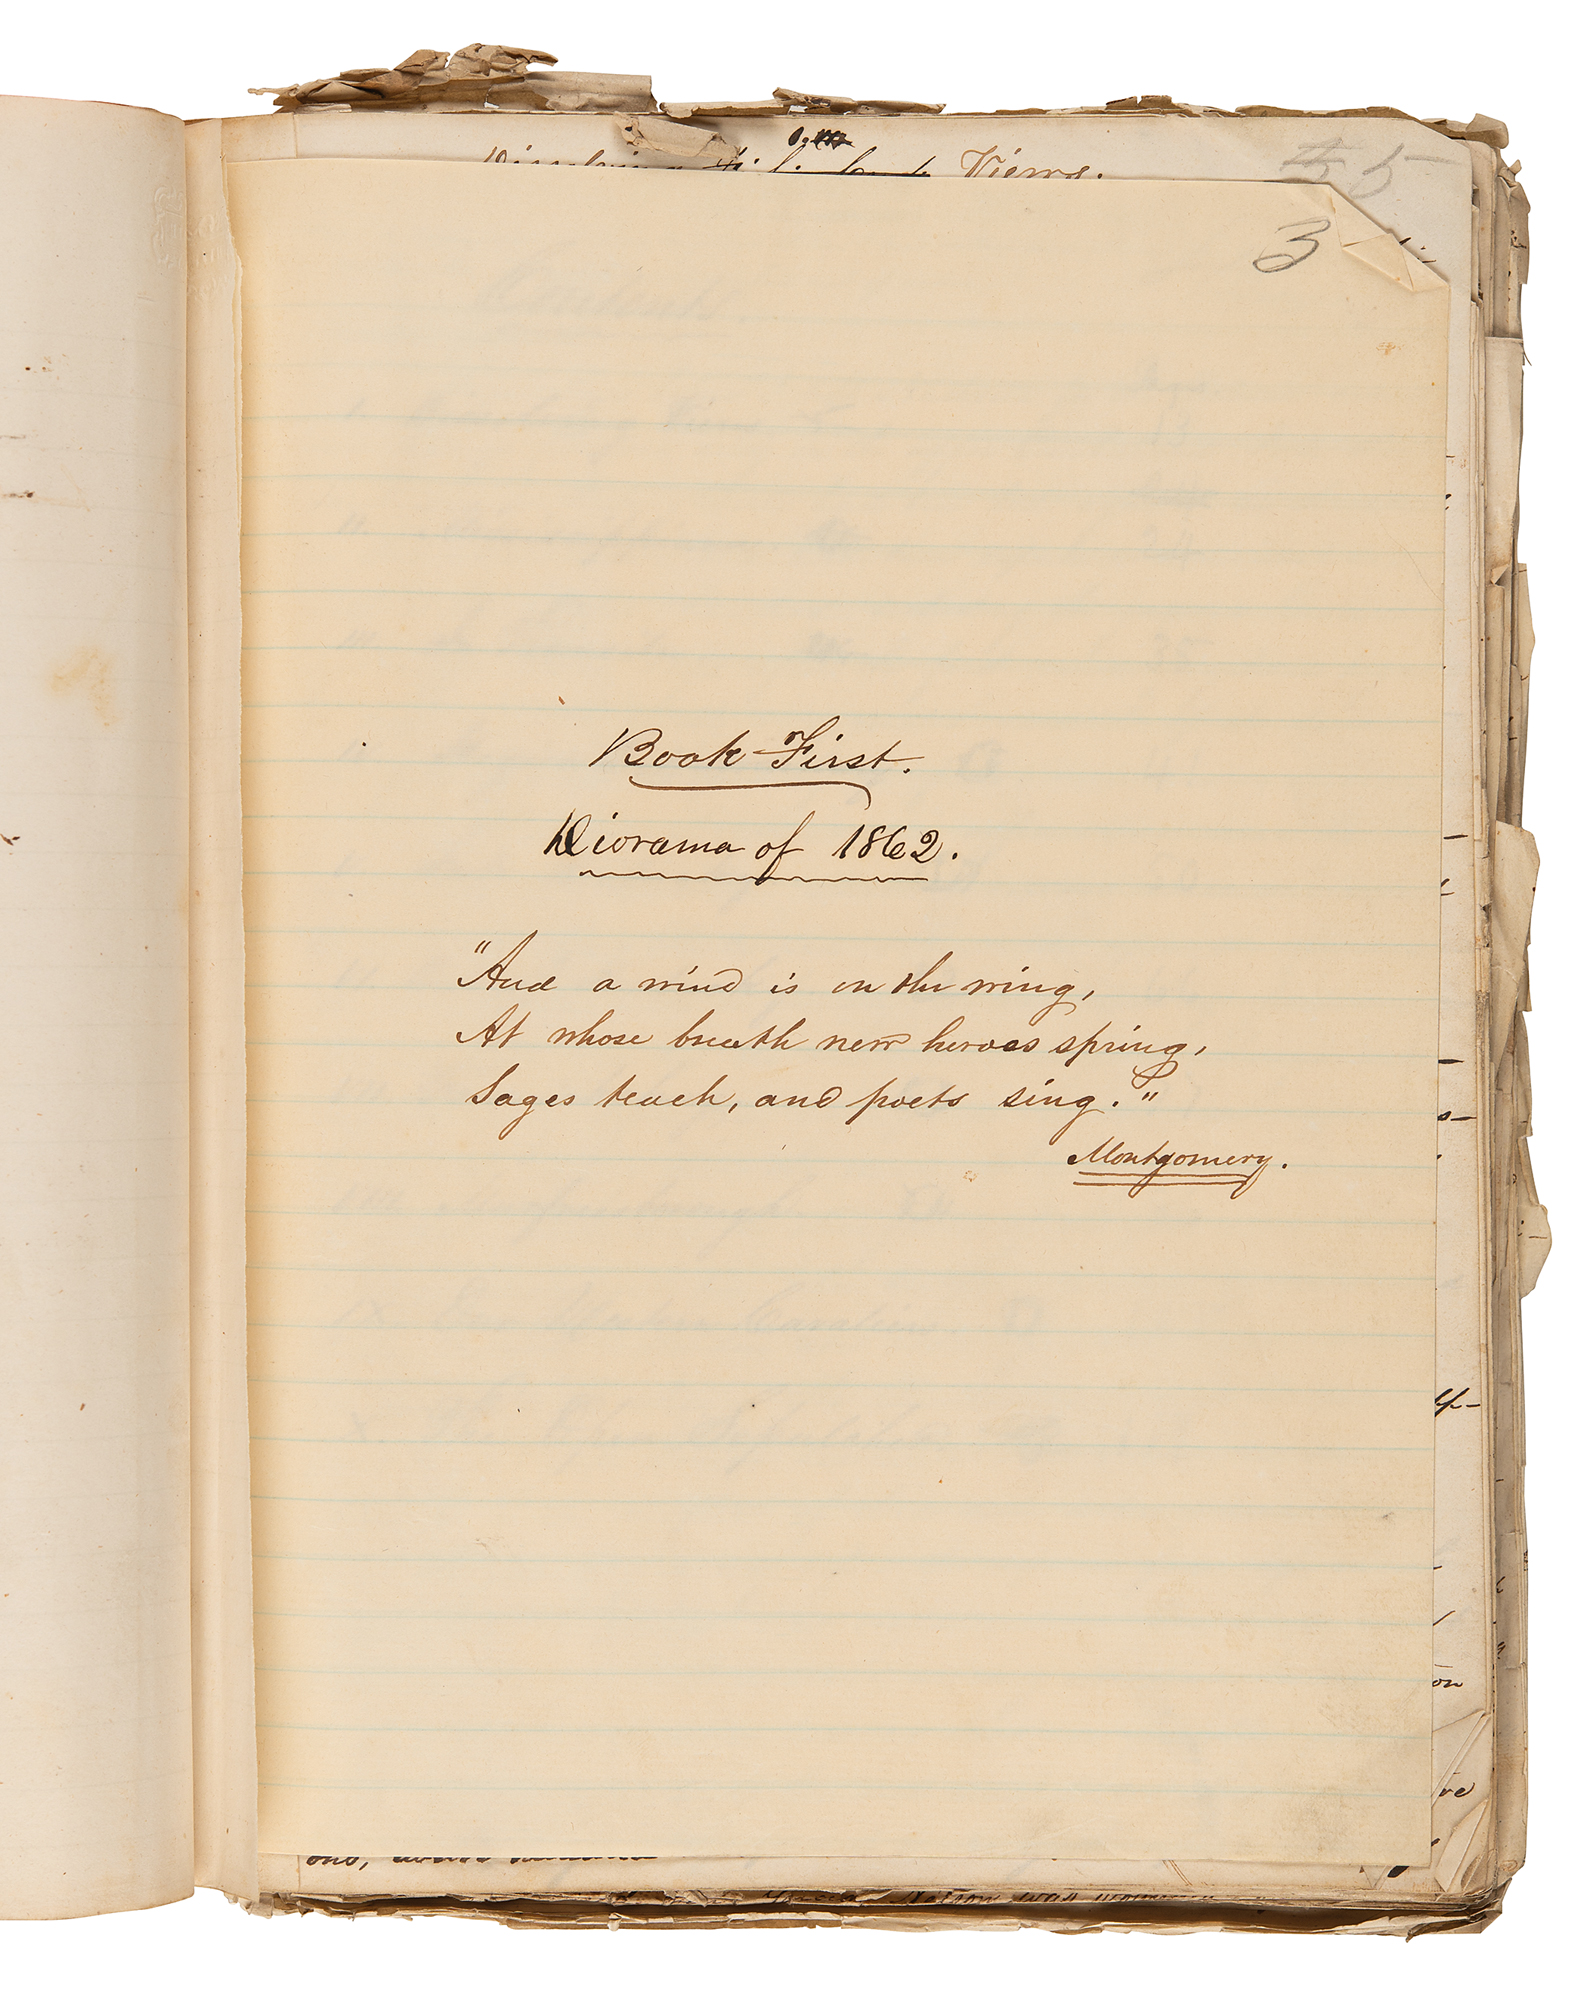 Views.
55
3
Book First.
Diorama of 1862.
"And a wind is on the wing,
At whose breath new heroes spring,
Sages teach, and poets sing."
Montgomery.
4-
on
re
was